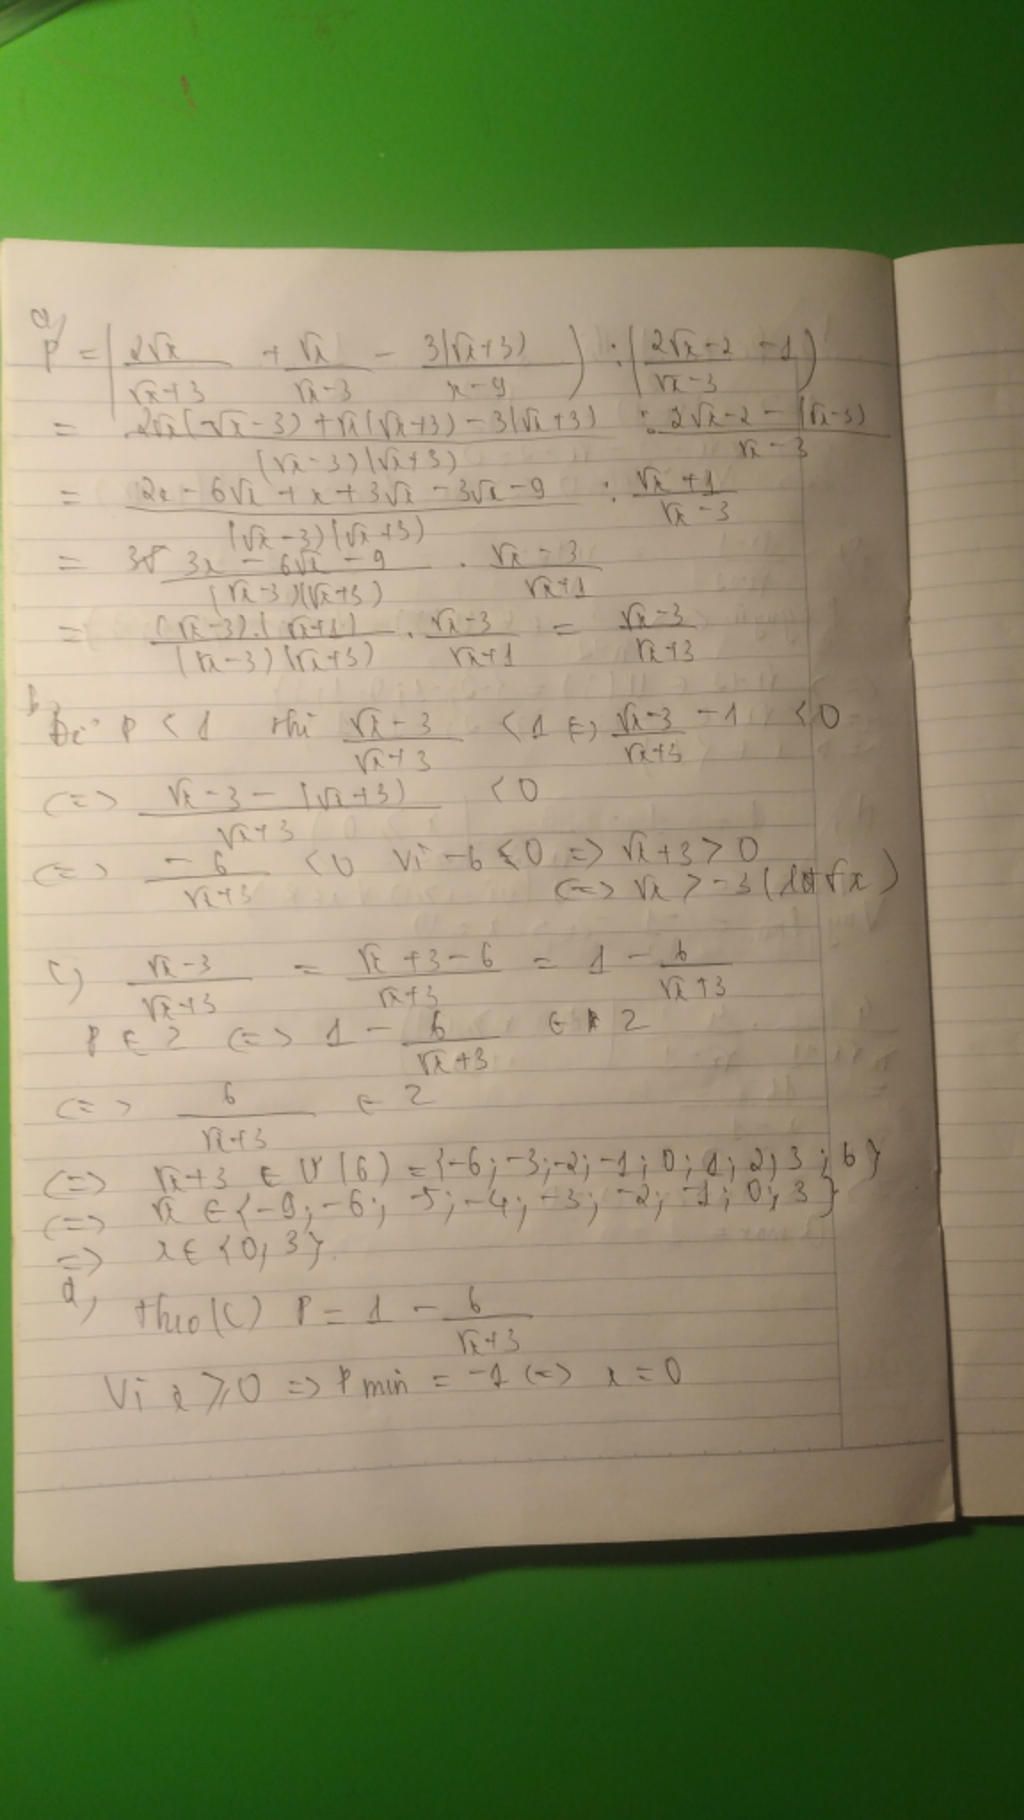 a,
P = (2√x/(√x+3) + √x/(√x-3) - 3(√x+3)/(x-9)) : ((2√x-2)/(√x-3) - 1)
= (2√x(√x-3) + √x(√x+3) - 3(√x+3))/((√x-3)(√x+3)) : (2√x-2-(√x-3))/(√x-3)
= (2x - 6√x + x + 3√x - 3√x - 9)/((√x-3)(√x+3)) : (√x+1)/(√x-3)
= (3x - 6√x - 9)/((√x-3)(√x+3)) . (√x-3)/(√x+1)
= ((√x-3).(√x+1))/((√x-3)(√x+3)) . (√x-3)/(√x+1) = (√x-3)/(√x+3)
b,
Để P < 1 thì (√x-3)/(√x+3) < 1 <=> (√x-3)/(√x+3) - 1 < 0
<=> (√x-3-(√x+3))/(√x+3) < 0
<=> -6/(√x+3) < 0 Vì -6 < 0 => √x+3 > 0
<=> √x > -3
c) (√x-3)/(√x+3) = (√x+3-6)/(√x+3) = 1 - 6/(√x+3)
P ∈ Z <=> 1 - 6/(√x+3) ∈ Z
<=> 6/(√x+3) ∈ Z
<=> √x+3 ∈ Ư(6) = {-6; -3; -2; -1; 0; 1; 2; 3; 6}
<=> √x ∈ {-9; -6; -5; -4; -3; -2; -1; 0; 3}
=> x ∈ {0; 3}.
d,
theo (c) P = 1 - 6/(√x+3)
Vì x ≥ 0 => P min = -1 <=> x = 0